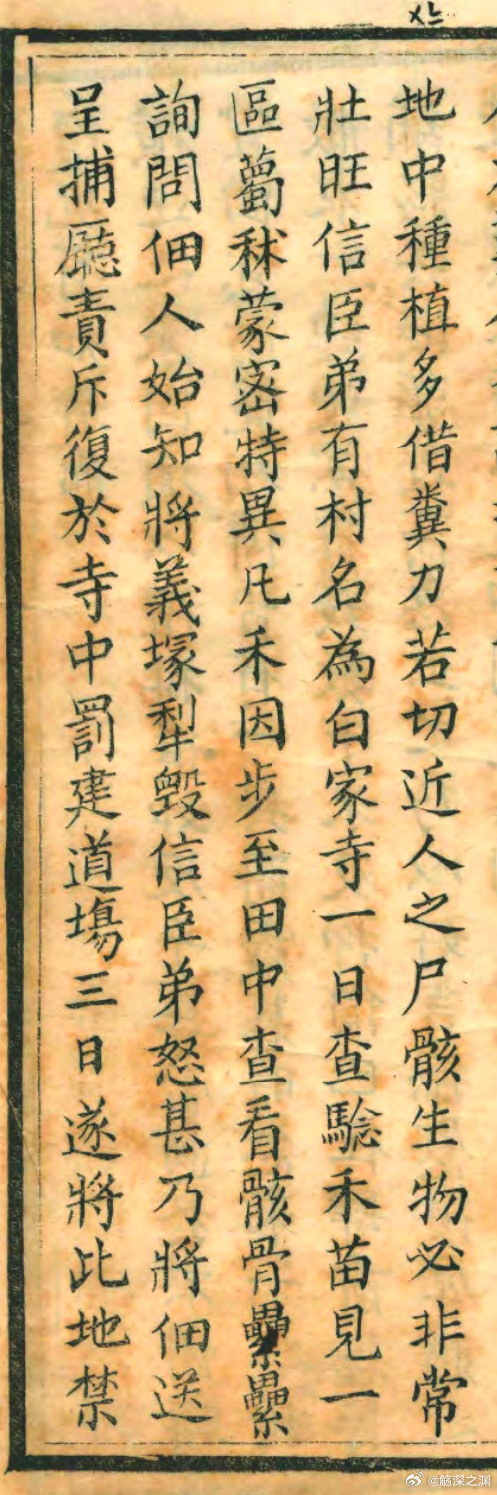 地中種植多借糞力若切近人之尸骸生物必非常
壯旺信臣弟有村名為白家寺一日查騐禾苗見一
區蔔秫蒙密特異凡禾因步至田中查看骸骨纍纍
詢問佃人始知將義塚犁毀信臣弟怒甚乃將佃送
呈捕廳責斥復於寺中罰建道塲三日遂將此地禁
@觞深之渊